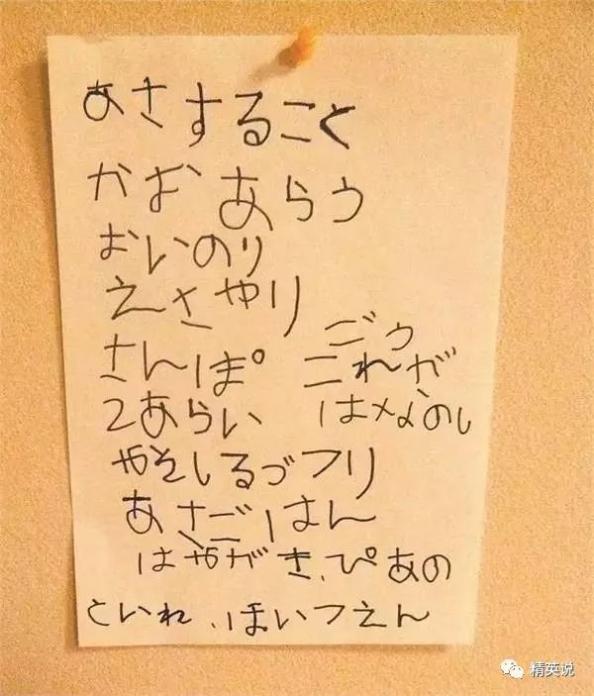 あさすること
かおあらう
おいのり
えさやり
さんぽ
てあらい
みそしるづくり
あさごはん
はみがき、ぴあの
といれ、ほいくえん
ごう
これが
はなのし
精英说